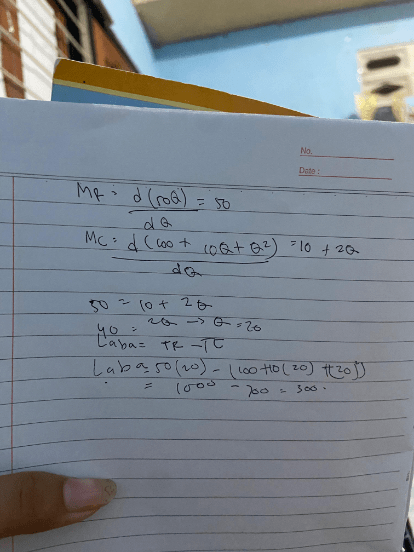 No.
Date :
MR = d(50Q) = 50
dQ
MC = d(100 + 10Q + Q²) = 10 + 2Q
dQ
50 = 10 + 2Q
40 = 2Q → Q = 20
Laba = TR - TC
Laba = 50(20) - (100 + 10(20) + (20)²)
= 1000 - 700 = 300.